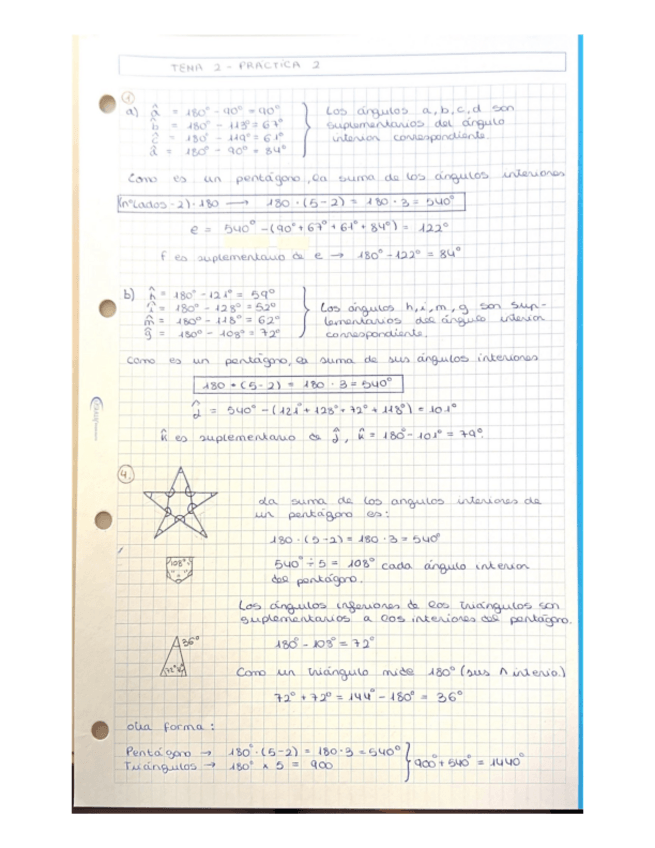 TEMA 2 - PRACTICA 2
1
a) â = 180° - 90° = 90°
b̂ = 180° - 113° = 67°
ĉ = 180° - 119° = 61°
d̂ = 180° - 90° = 84°
Los ángulos a, b, c, d son
suplementarios del ángulo
interior correspondiente.
Como es un pentágono, la suma de los ángulos interiores
(nºlados - 2) · 180 → 180 · (5 - 2) = 180 · 3 = 540°
e = 540° - (90° + 67° + 61° + 84°) = 122°
f es suplementario de e → 180° - 122° = 84°
b) ĥ = 180° - 121° = 59°
î = 180° - 128° = 52°
m̂ = 180° - 118° = 62°
ĝ = 180° - 108° = 72°
Los ángulos h, i, m, g son sup-
lementarios del ángulo interior
correspondiente.
Como es un pentágono, la suma de sus ángulos interiores
180 · (5 - 2) = 180 · 3 = 540°
ĵ = 540° - (121° + 128° + 72° + 118°) = 101°
k̂ es suplementario de ĵ, k̂ = 180° - 101° = 79°.
4.
La suma de los angulos interiores de
un pentágono es:
180 · (5 - 2) = 180 · 3 = 540°
108°
540° ÷ 5 = 108° cada ángulo interior
del pentágono.
Los ángulos inferiores de los triángulos son
suplementarios a los interiores del pentágono.
180° - 108° = 72°
36°
72°
Como un triángulo mide 180° (sus ∧ interio.)
72° + 72° = 144° - 180° = 36°
otra forma:
Pentágono → 180° · (5 - 2) = 180 · 3 = 540°
Triángulos → 180° × 5 = 900
900° + 540° = 1440°